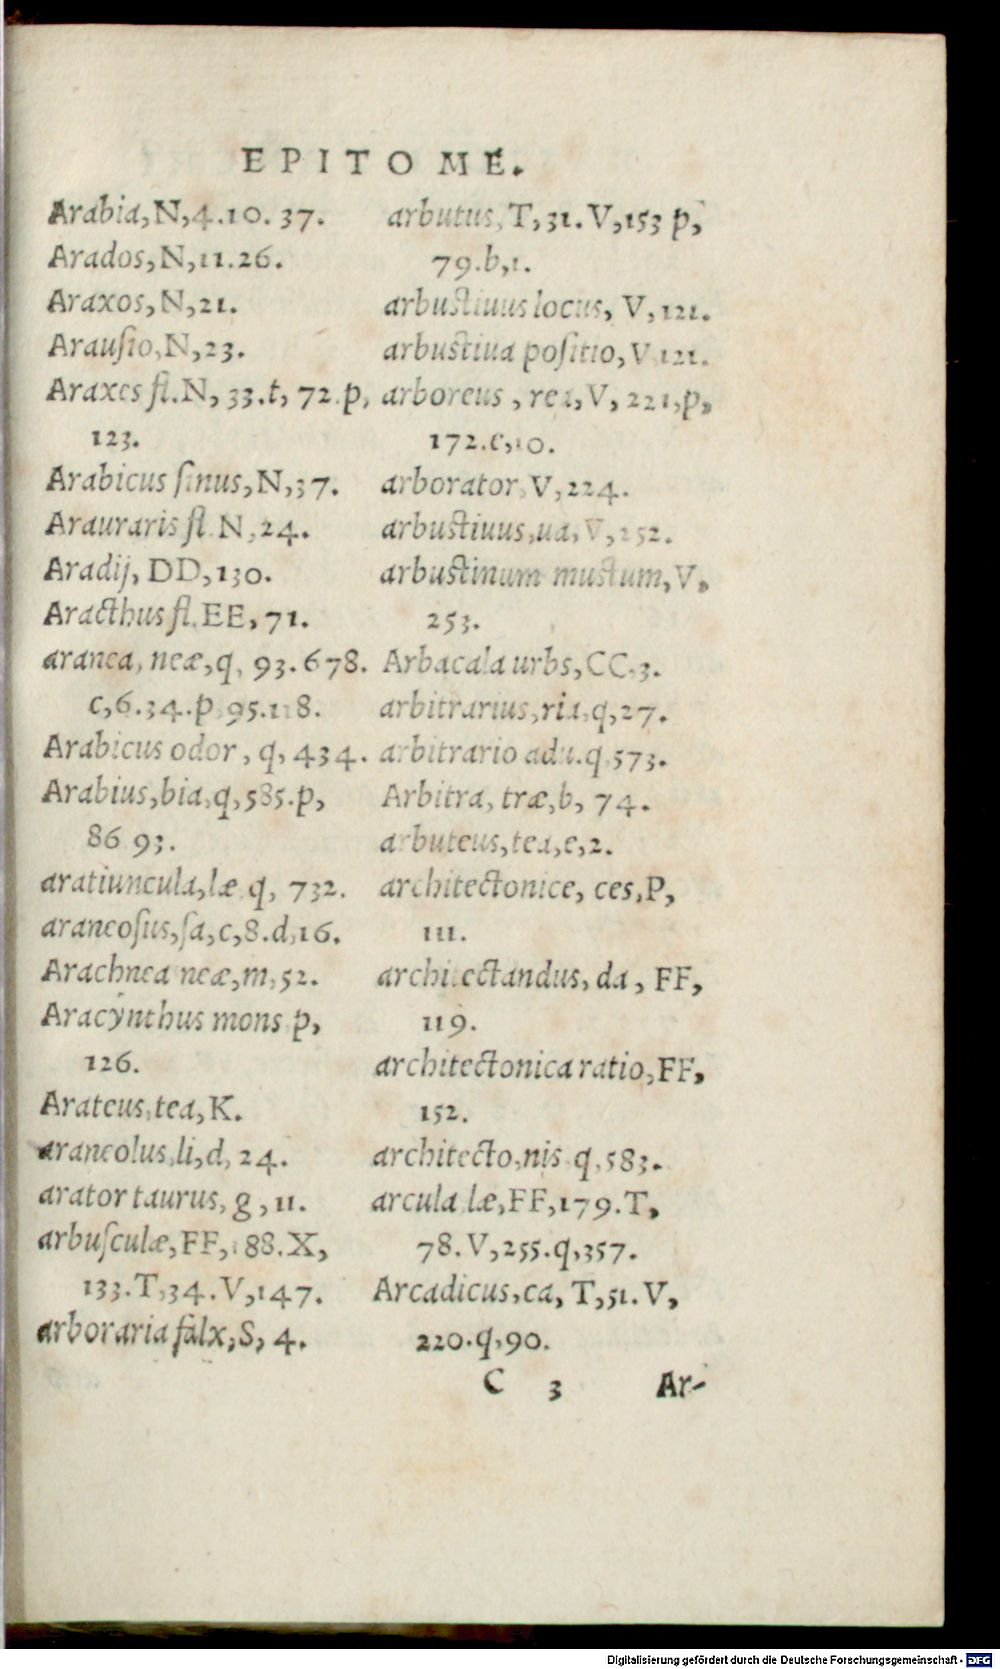 EPITOME.
Arabia, N, 4.10. 37.
Arados, N, 11.26.
Araxos, N, 21.
Arausio, N, 23.
Araxes fl. N, 33.t, 72.p,
123.
Arabicus sinus, N, 37.
Arauraris fl. N, 24.
Aradij, DD, 130.
Aracthus fl. EE, 71.
aranea, neæ, q, 93. 678.
c, 6. 34. p, 95. 118.
Arabicus odor, q, 434.
Arabius, bia, q, 585. p,
86 93.
aratiuncula, læ q, 732.
araneosus, sa, c, 8. d, 16.
Arachnea neæ, m, 52.
Aracynthus mons p,
126.
Arateus, tea, K.
araneolus, li, d, 24.
arator taurus, g, 11.
arbusculæ, FF, 188. X,
133. T, 34. V, 147.
arboraria falx, S, 4.
arbutus, T, 31. V, 153 p,
79. b, 1.
arbustiuus locus, V, 121.
arbustiua positio, V 121.
arboreus, rea, V, 221, p,
172. c, 10.
arborator, V, 224.
arbustiuus, ua, V, 252.
arbustinum mustum, V,
253.
Arbacala urbs, CC, 3.
arbitrarius, ria, q, 27.
arbitrario adu. q, 573.
Arbitra, træ, b, 74.
arbuteus, tea, e, 2.
architectonice, ces, P,
111.
architectandus, da, FF,
119.
architectonica ratio, FF,
152.
architecto, nis q, 583.
arcula læ, FF, 179. T,
78. V, 255. q, 357.
Arcadicus, ca, T, 51. V,
220. q, 90.
C 3 Ar-
Digitalisierung gefördert durch die Deutsche Forschungsgemeinschaft - DFG